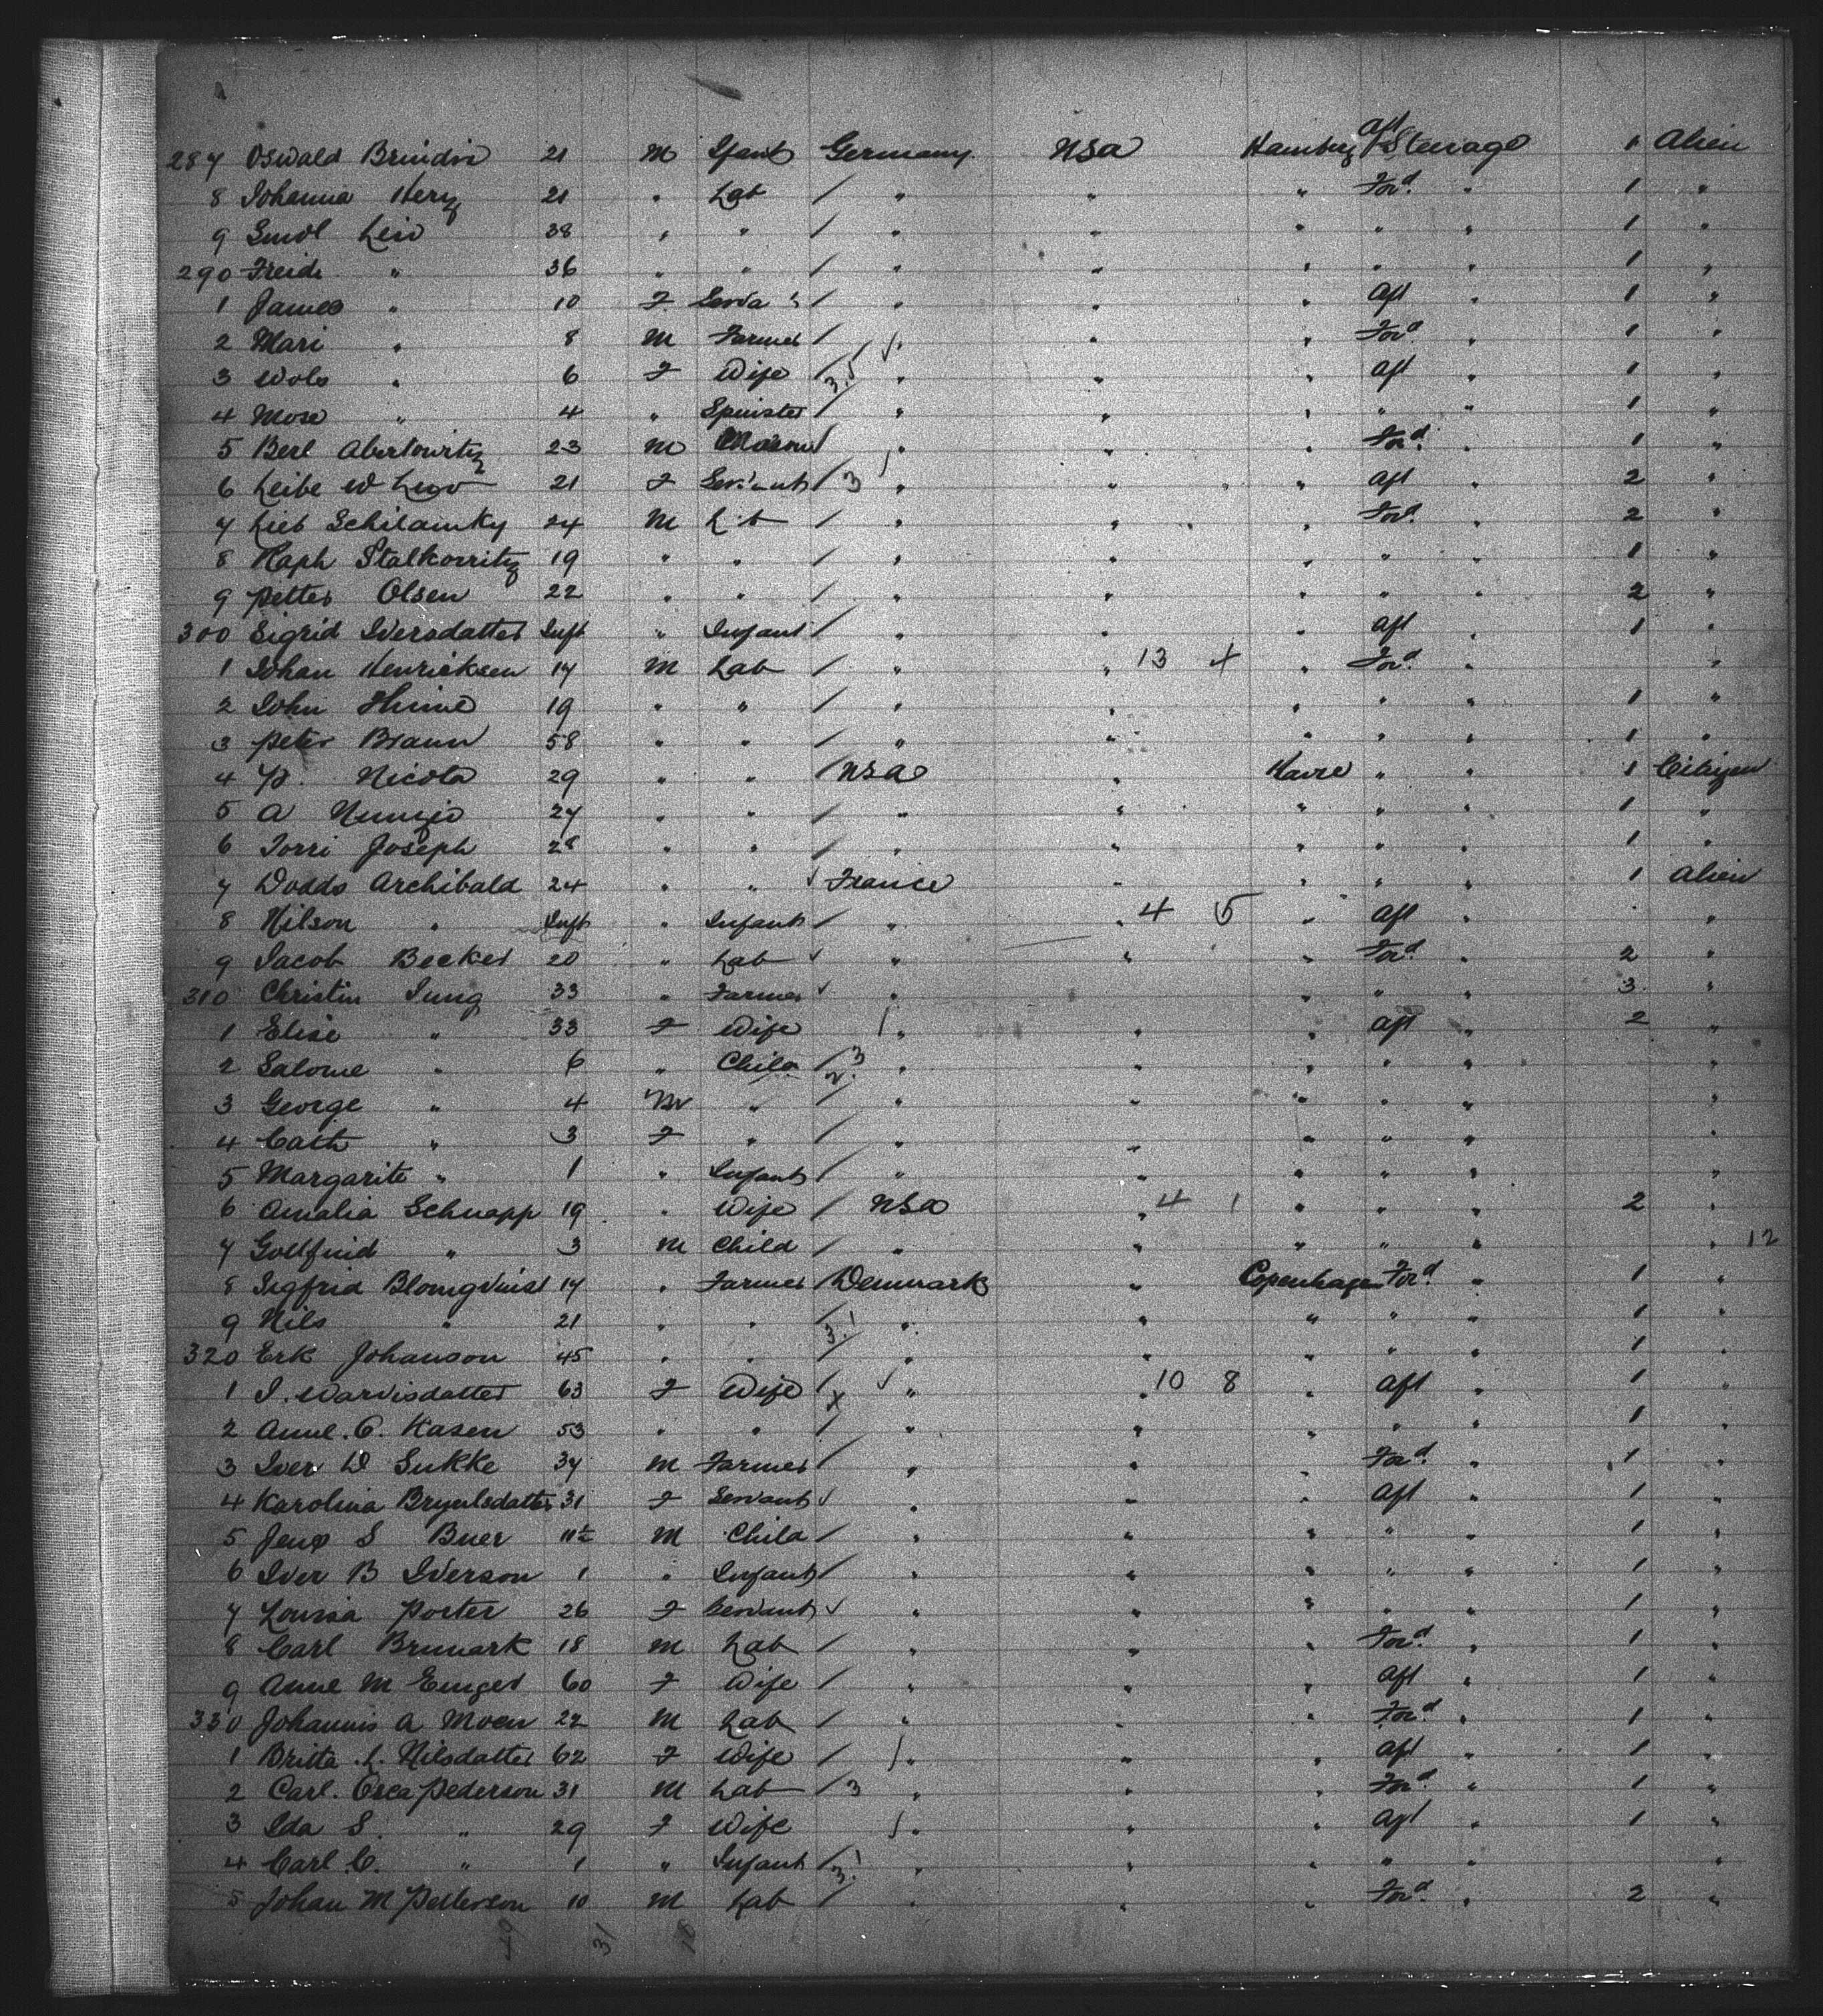 287 Oswald Brindin 21 M Germany NSA Hamburg Aft Steerage 1 Alien
8 Johanna Herz 21 " Lab / " " " Ford " 1 "
9 Levi 38 " " / " " " " " 1 "
290 Freide " 36 " " / " " " " " 1 "
1 James " 10 F / " " " Aft " 1 "
2 Mari " 8 M Farmer / " " " Ford " 1 "
3 Wolo " 6 F Wife / " " " Aft " 1 "
4 Mose " 4 " Spinster / " " " " " 1 "
5 Berl Abertowitz 23 M Mason / " " " Ford " 1 "
6 Leibe W 21 F Servant / 3 " " " Aft " 2 "
7 Lieb Schilamky 24 M Lab / " " " Ford " 2 "
8 Raph Stalkorritz 19 " " / " " " " " 1 "
9 Petter Olsen 22 " " / " " " " " 2 "
300 Sigrid Iversdatter Inft " Infant / " " " Aft " 1 "
1 Johan Henricksen 17 M Lab / " " 13 4 " Ford " "
2 John Thime 19 " " / " " " " " 1 "
3 Peter Braun 58 " " / " " " " " 1 "
4 P. Nicola 29 " " / NSA " Havre " " 1 Citizen
5 A Nunzio 27 " " / " " " " " 1 "
6 Torri Joseph 28 " " / " " " " " 1 "
7 Dodds Archibald 24 " " France " " " " 1 Alien
8 Nilson " Inft " Infant / " " 4 5 " Aft " "
9 Jacob Becker 20 " Lab " " " Ford " 2 "
310 Christin Jung 33 " Farmer " " " " 3 "
1 Elise " 33 F Wife / " " " Aft " 2 "
2 Salome " 6 " Child / " " " " " "
3 George " 4 M " / " " " " " "
4 Cath " 3 F " / " " " " " "
5 Margarite " 1 " Infant / " " " " " "
6 Amalia Schnapp 19 " Wife / NSA " 4 1 " " " 2 "
7 Gottfried " 3 M Child / " " " " " " 12
8 Sigfrid Blomqvist 17 " Farmer / Denmark " Copenhagen Ford " 1 "
9 Nils " 21 " " " " " " " 1 "
320 Erk Johanson 45 " " / " " " " " 1 "
1 I. Warvisdatter 63 F Wife / " " 10 8 " Aft " 1 "
2 Anne. C. Kasen 53 " " / " " " " " 1 "
3 Iver D Sukke 37 M Farmer / " " " Ford " 1 "
4 Karolina Brynlsdatter 31 F Servant " " " Aft " 1 "
5 Jens S Buer 11½ M Child / " " " " " 1 "
6 Iver B Iverson 1 " Infant / " " " " " 1 "
7 Louisa Porter 26 F Servant " " " " " 1 "
8 Carl Brumark 18 M Lab / " " " Ford " 1 "
9 Anne M Enger 60 F Wife / " " " Aft " 1 "
330 Johannis A Moen 22 M Lab / " " " Ford " 1 "
1 Britta L. Nilsdatter 62 F Wife / " " " Aft " 1 "
2 Carl. Osca Pederson 31 M Lab / 3 " " " Ford " 1 "
3 Ida S. " 29 F Wife " " " Aft " 1 "
4 Carl C. " 1 " Infant / " " " " " "
5 Johan M Petterson 10 M Lab / " " " Ford " 2 "
49 31 18